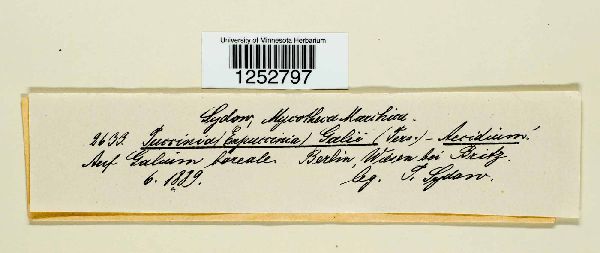 University of Minnesota Herbarium
1252797
Sydow, Mycotheca Marchica.
2633. Puccinia (Eupuccinia) Galii (Pers.) - Aecidium.
Auf Galium boreale. Berlin, Wiesen bei Britz.
6. 1889. leg. P. Sydow.